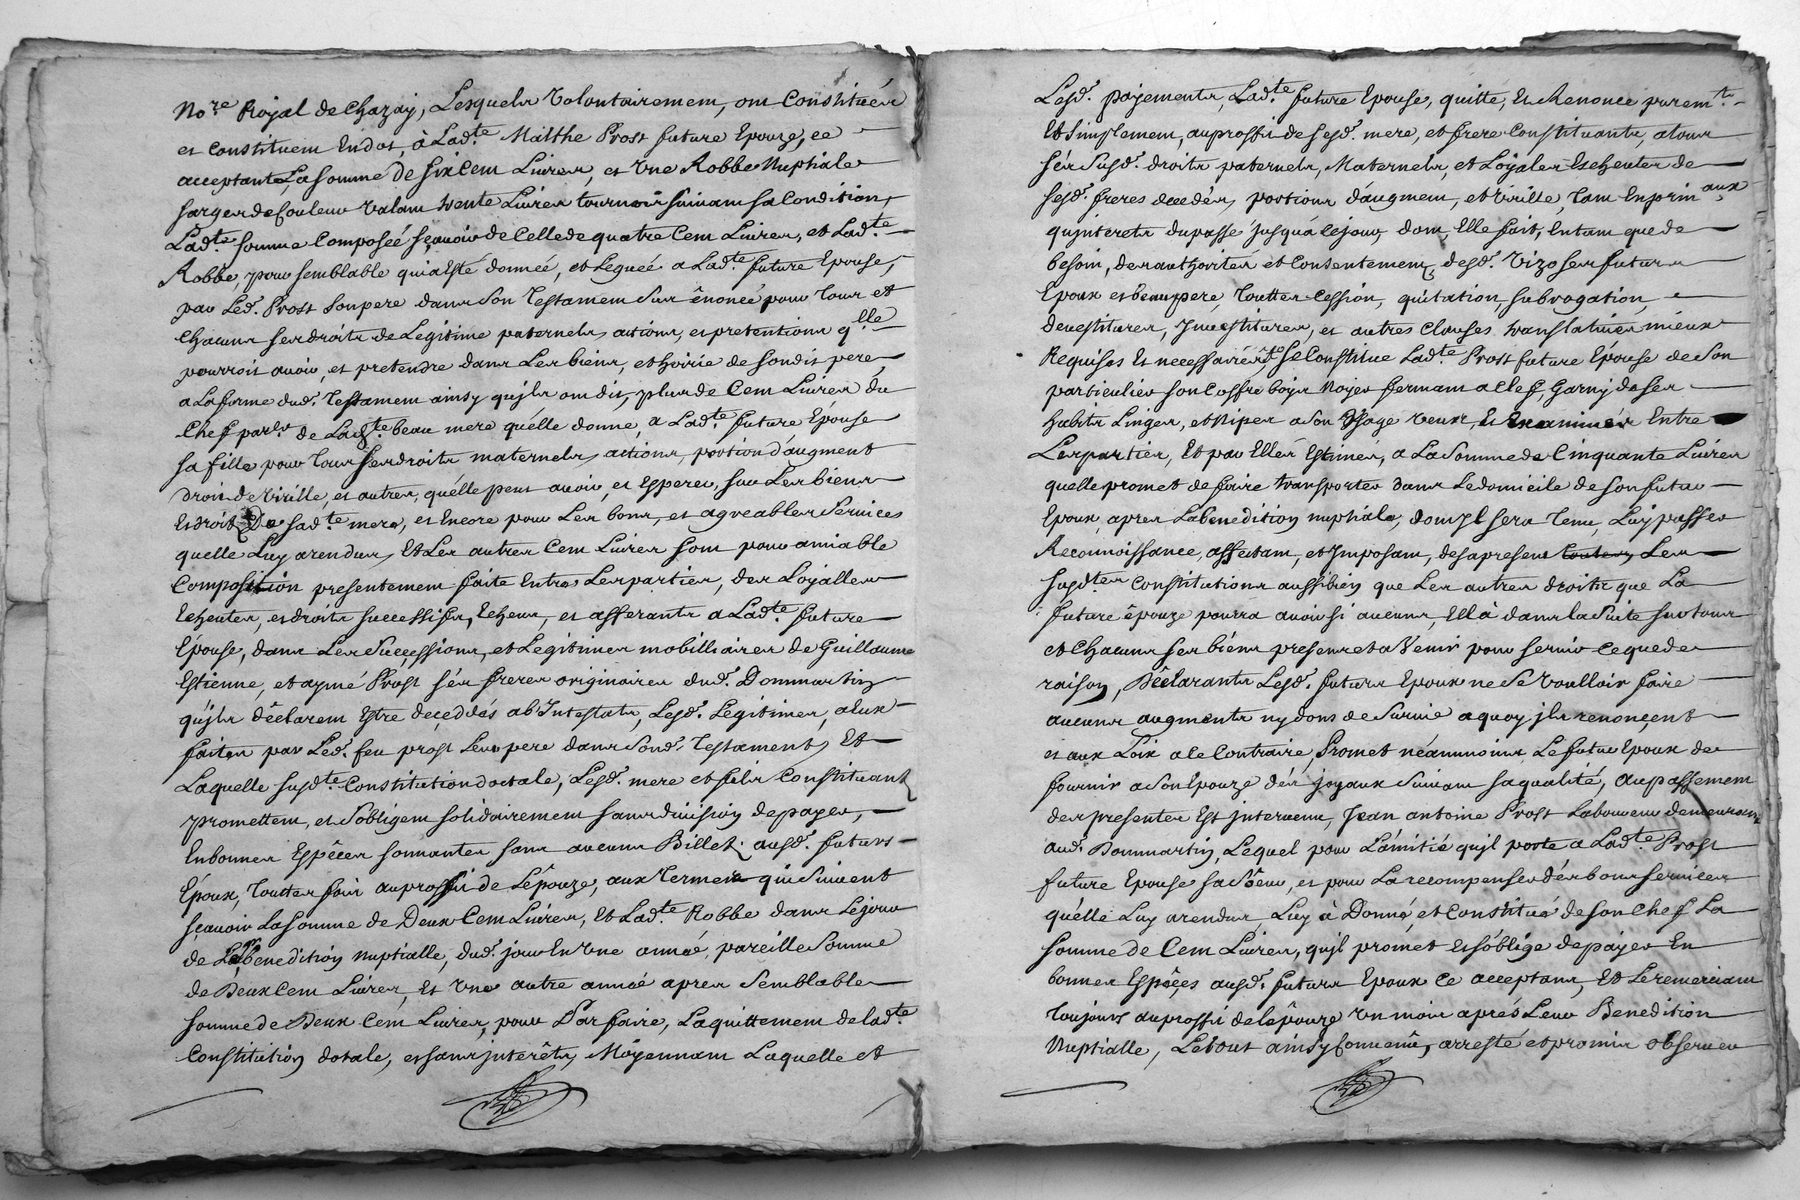 No.re Royal de Chazay, Lesquels Volontairement, ont Constitués
et constituent En dot, à Lad.te Malthe Prost future Epouze, ce
acceptante, La somme de six Cent Livres, et Une Robbe Nuptiale
sarges de Couleur valant trente Livres tournois suivant sa Condition,
Lad.te somme Composeé sçauoir de Celle de quatre Cent Livres, et Lad.te
Robbe, pour semblable qui a Esté donneé, et Legueé a Lad.te future Epouse,
par Led. Prost son pere dans son Testament sus énoncé pour tous et
Chacuns ses droits de Legitime paternels, actions, et pretentions q.lle
pourroit auoir, et pretendre dans Les biens, et hoirie de sondit pere,
a La forme dud. Testament ainsy qu'ils ont dit, plus de Cent Livres du
Chef par.er de Lad.te beau mere qu'élle donne, a Lad.te future Epouse
sa fille pour tous ses droits maternels, actions, portion d'áugment
droit de Virille, et autres, qu'élle peut auoir, et Esperer, sur Les biens
Et droits De sad.te mere, et Encore pour Les bons, et agreables Seruices
quelle Luy a rendus, Et Les autres Cent Livres sont pour amiable
Composition presentement faite Entre Les parties, des Loyalles
Echeutes, et droits successifs, Echeus, et afferants a Lad.te future
Epouse, dans Les Successions, et Legitimes mobilliaires de Guillaume
Estienne, et aymé Prost sés freres originaires dud. Dommartin
qu'ils déclarent Estre decedés ab Intestats, Lesd. Legitimes, a Eux
faites par Led. feu prost Leur pere dans Sond. Testament, Et
Laquelle susd.te Constitution dotale, Lesd. mere et fils Constituants
promettent, et s'obligent solidairement sans diuision de payer,
En bonnes Espéces sonnantes sans aucuns Billets ausd. futurs
Epoux, toutte fois au proffit de L'épouze, aux termes qui Suiuent
sçauoir La somme de Deux Cent Livres, Et Lad.te Robbe dans Le jour
de La benedition nuptialle, dud. jour En Une année, pareille Somme
de Deux Cent Livres, Et Une autre année apres Semblable
somme de Deux Cent Livres, pour Parfaire, L'aquittement de lad.te
Constitution dotale, et sans interêts, Moyennant Laquelle et
Lesd. payements, Lad.te future Epouse, quitte, Et Renonce purem.t
Et Simplement, au proffit de Sesd. mere, et frere Constituants, a tous
sés Susd. droits paternels, Maternels, et Loyales Echeutes de
sesd. freres decedés, portions d'áugment, et Virille, tant En prin.aux
qu'interets du passé jusqu'á Ce jour, dont, Elle fait, Entant que de
besoin, des authorités et Consentement, desd. Vizo ses futurs
Epoux et beaupere, toutter Cession, quitation, subrogation,
deuestitures, Jnuestitures, et autres Clauses translatiues mieux
Requises Et necessaires, Se Constitue Lad.te Prost future Epouse de Son
particulier son Coffre boys Noyer fermant a Clef, Garny de ses
habits Linges, et Nipes a Son Vsage Veux, Et Examinés Entre
Les parties, Et par Elles Estimés, a La Somme de Cinquante Livres
quelle promet de faire transporter dans Le domicile de Son futur
Epoux, apres La benedition nuptiale, dont jl sera Tenu, Luy passer
Reconnoissance, affectant, et Jmposant, des a present Les
susd.tes Constitutions aussi bien que Les autres droits que La
future épouze pourra auoir si aucuns, Ell à dans la Suite sur tous
et Chacuns ses biens presents et a Venir pour seruir Ce que de
raison, Déclarants Lesd. futurs Epoux ne Se Voulloir faire
aucuns augments ny dons de Suruie a quoy jls renoncent
et aux Loix a le Contraire, Promet néanmoins Le futur Epoux de
fournir a Son Epouze dés Joyaux Suiuant sa qualité, Au passement
des presentes Est jnteruenu, Jean antoine Prost Laboureur demeurant
aud. Dommartin, Lequel pour L'amitié qu'jl porte a Lad.te Prost
future Epouse sa Sœur, et pour La recompenser dés bons seruices
qu'élle Luy a rendus Luy à Donné, et Constitué de Son Chef La
somme de Cent Livres, qu'jl promet Et s'oblige de payer En
bonnes Espéces ausd. futurs Epoux Ce acceptant, Et Le remerciant
toujours au proffit de l'épouze Un mois aprés Leur Benedition
Nuptialle, Le tout ainsy Conuenu, arresté et promis obseruer